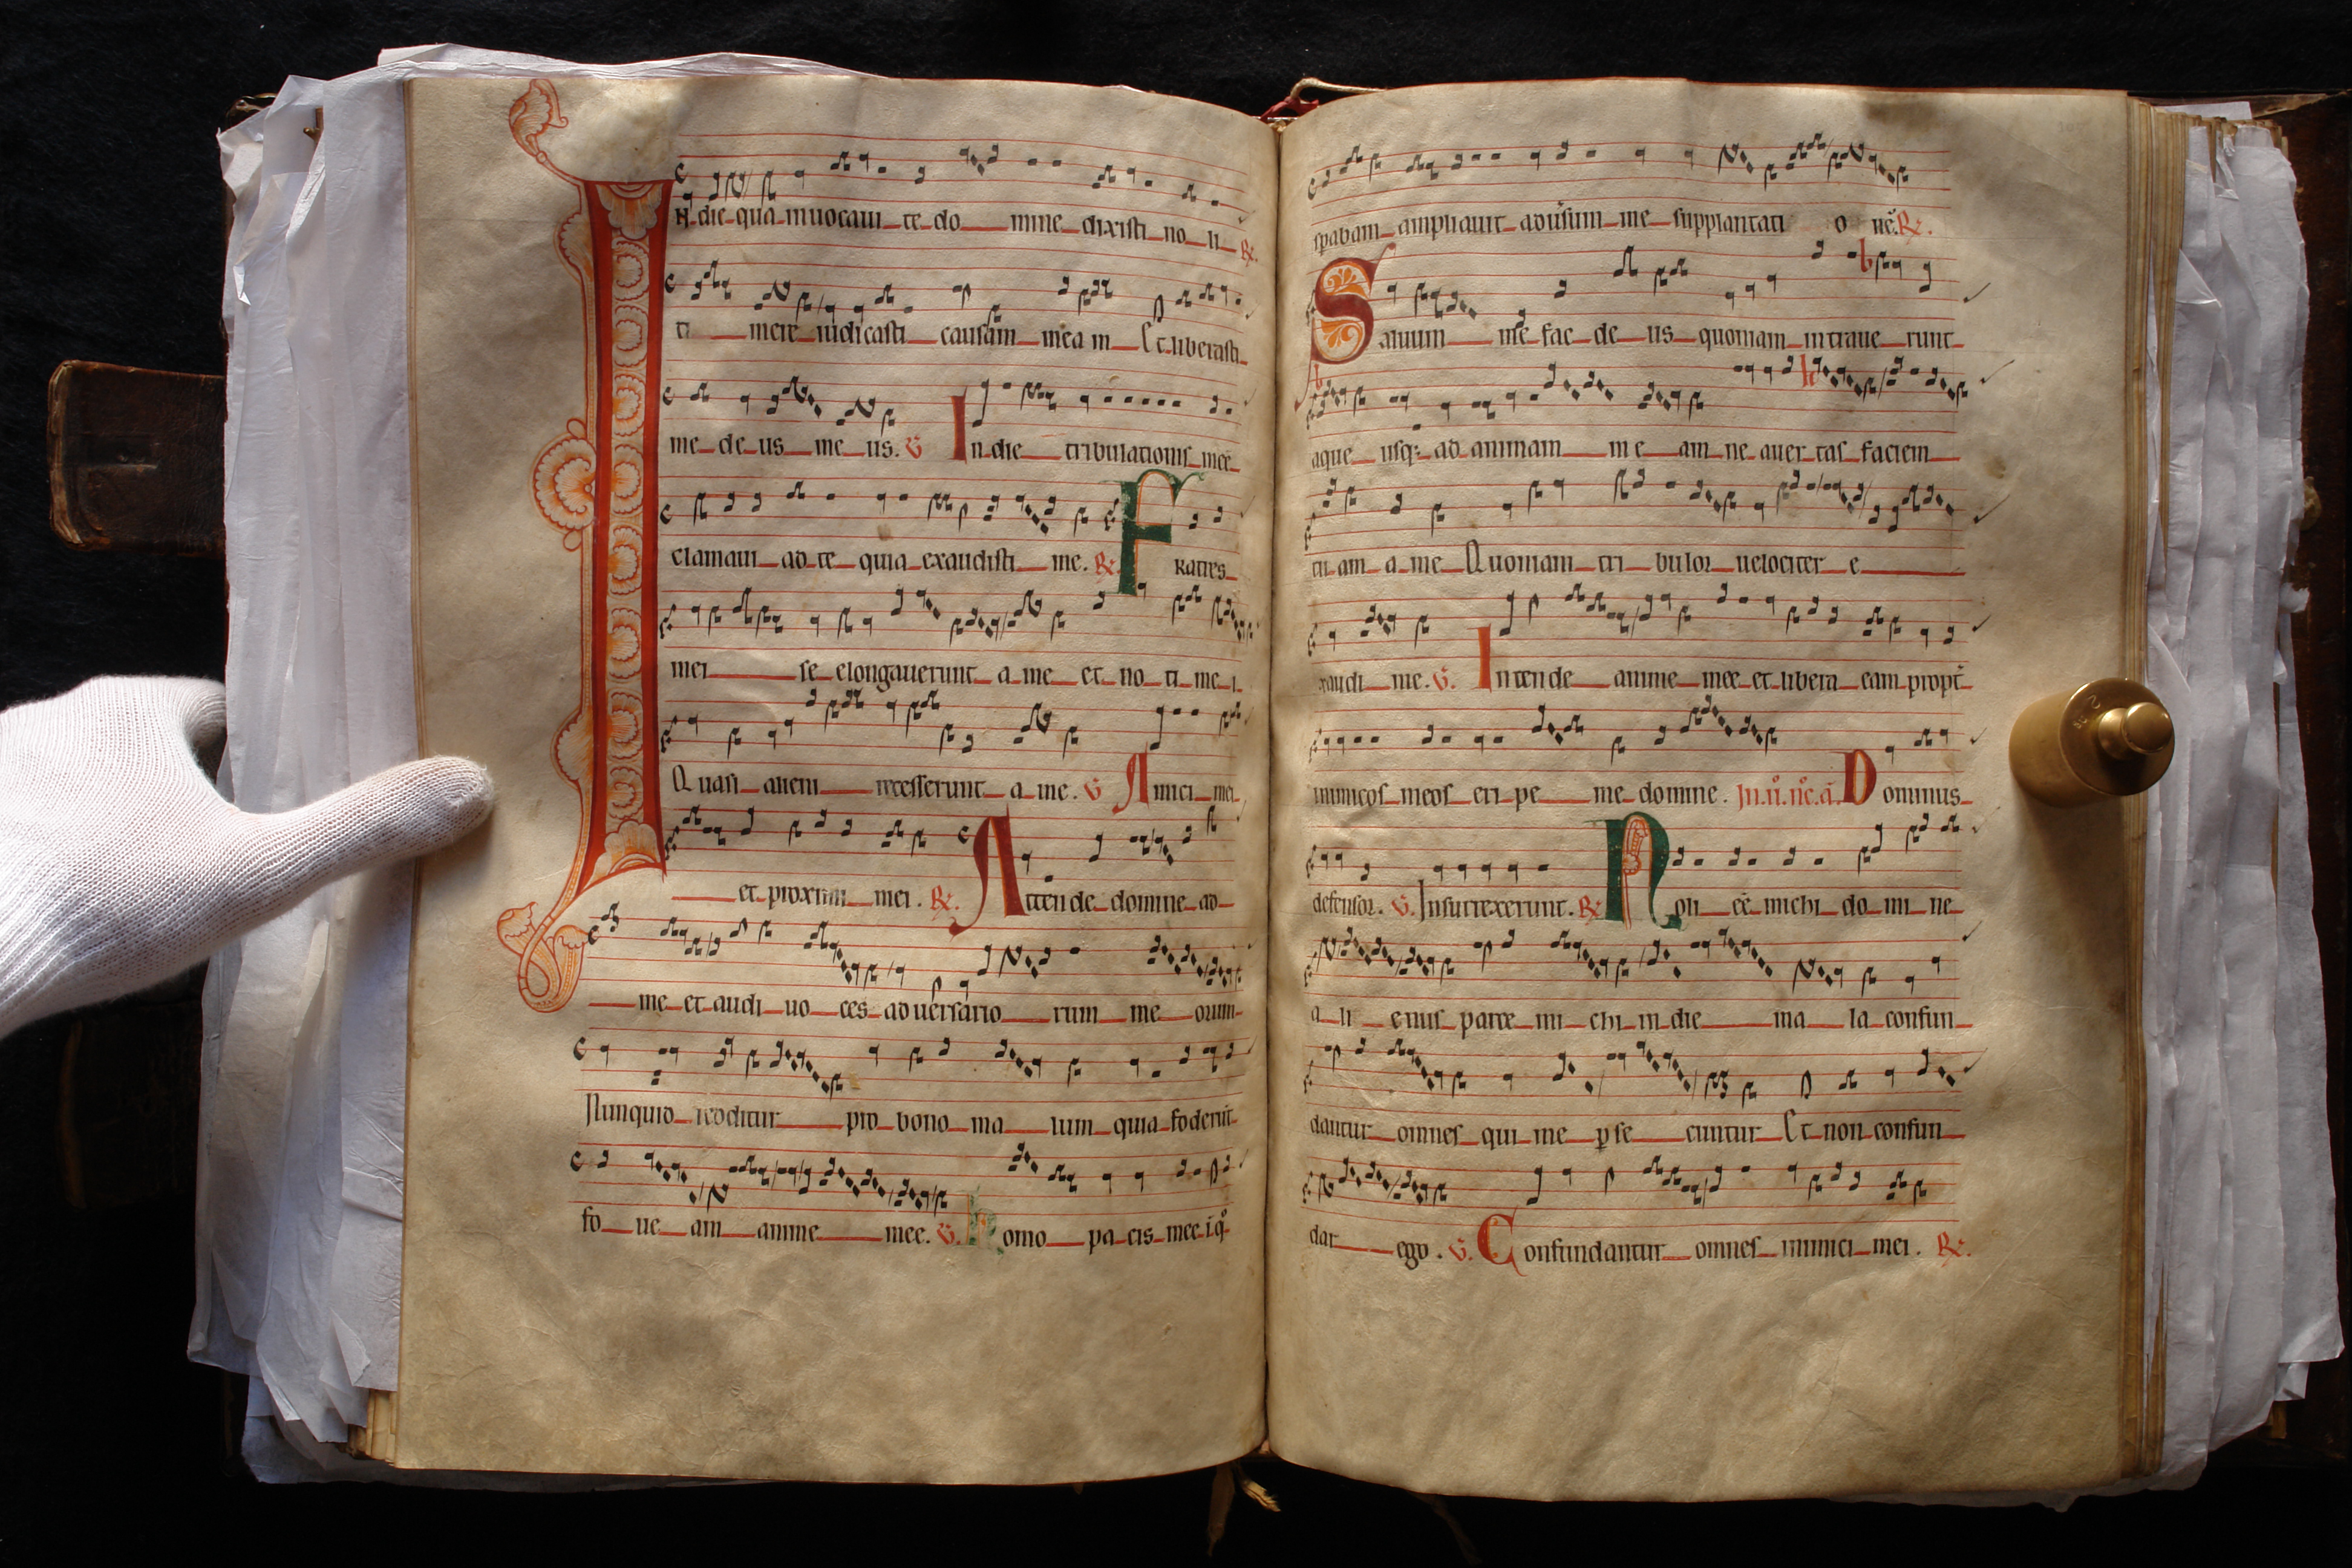 IN die qua inuocaui te do mine dixisti no li R
ti mere iudicasti causam mea m Et liberasti
me de us me us. V In die tribulationis mee
clamaui ad te quia exaudisti me. R. Fratres
mei se elongauerunt a me et no ti me i
Quasi alieni recesserunt a me. V Amici mei
et proximi mei. R. Attende domine ad
me et audi uo ces aduersario rum me orum
Nunquid redditur pro bono ma lum quia foderūt
fo ue am anime mee. V. Homo pa cis mee i q°
spabam ampliauit adūsum me supplantati o nē. R.
Saluum me fac de us quoniam intraue runt
aque usq; ad animam me am ne auer tas faciem
tu am a me Quoniam tri bulor uelociter e
xaudi me. V. Intende anime mee et libera eam propt̄
inimicos meos eri pe me domine. Dominus
defensor. V. Insurrexerunt. R Non eē michi do mi ne
a li enus parce mi chi in die ma la confun
dantur omnes qui me ꝑse cuntur Et non confun
dar ego. V. Confundantur omnes inimici mei. R.
2